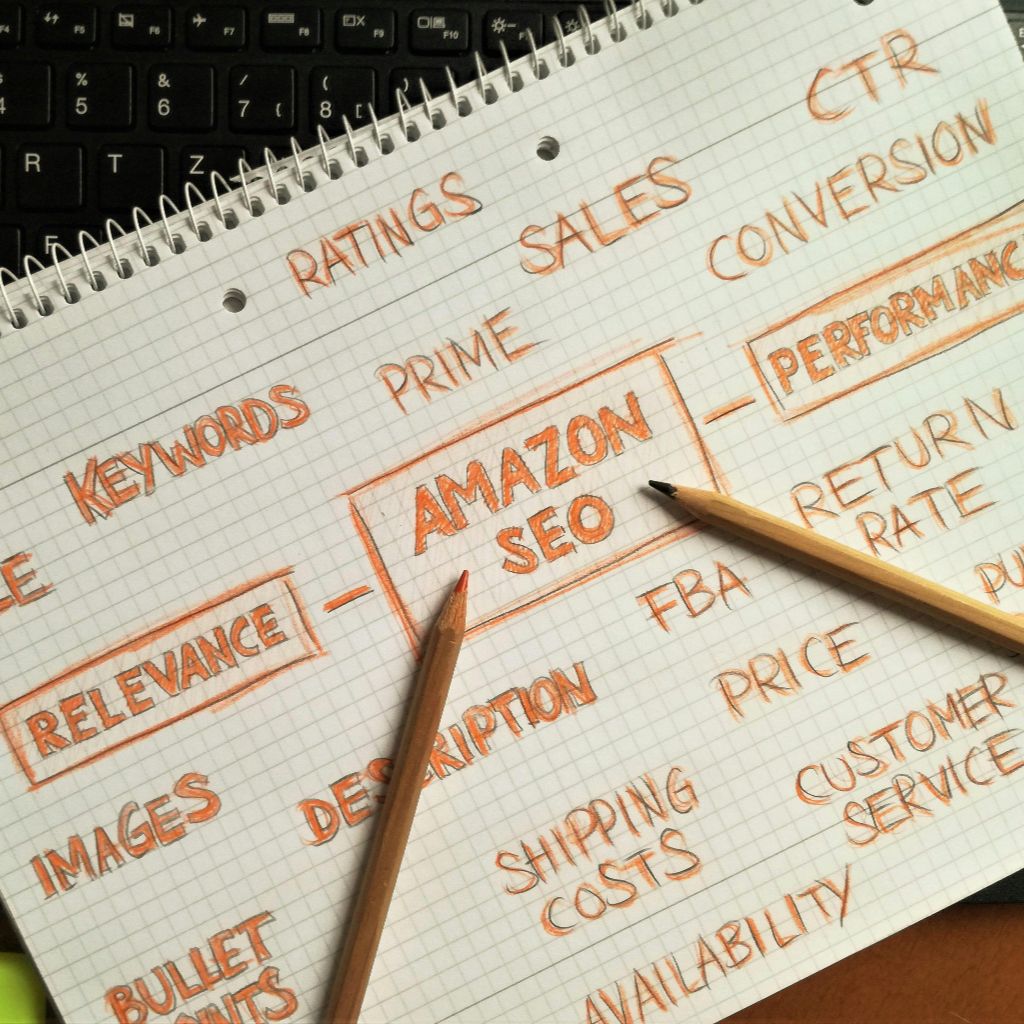 F4
F5
F6
F7
F8
F9
F10
%
5
&
6
/
7 {
(
8 [
4
R
T
Z
F
CTR
RATINGS
SALES
CONVERSION
PRIME
PERFORMANC
KEYWORDS
AMAZON
SEO
RETURN
RATE
LE
FBA
PU
RELEVANCE
PRICE
DESCRIPTION
CUSTOMER
SERVICE
IMAGES
SHIPPING
COSTS
BULLET
OINTS
AVAILABILITY